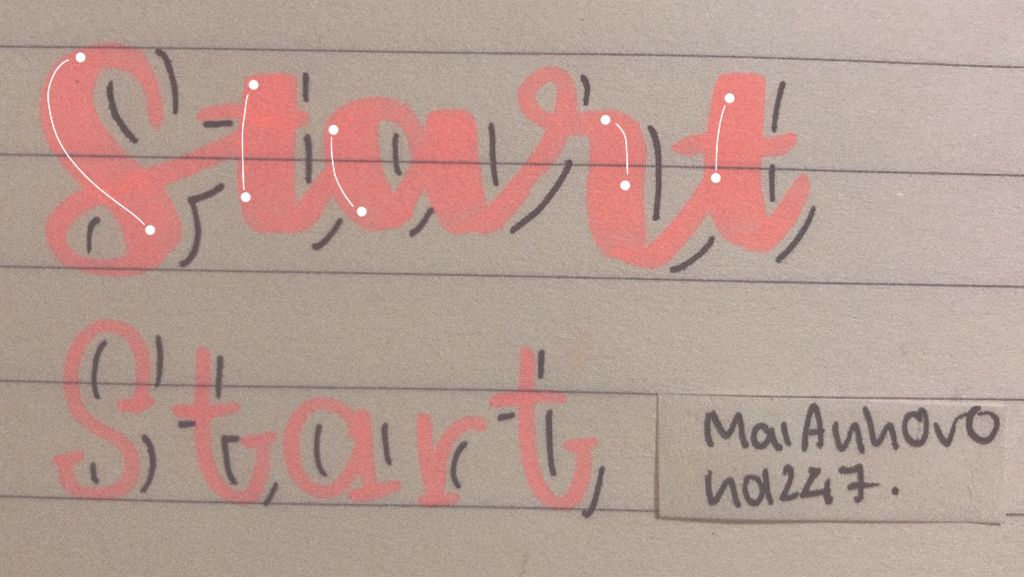 Start
Start
MaiAnhOvO
nd247.